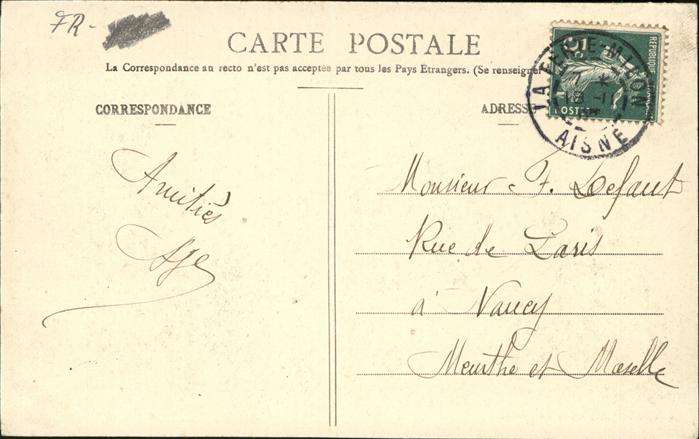 FR-
CARTE POSTALE
La Correspondance au recto n'est pas acceptée par tous les Pays Etrangers. (Se renseigner
CORRESPONDANCE
ADRESSE
LA FERTE-MILON
AISNE
POSTES
Amitiés
Monsieur F. Defaut
Rue de Paris
à Nancy
Meurthe et Moselle